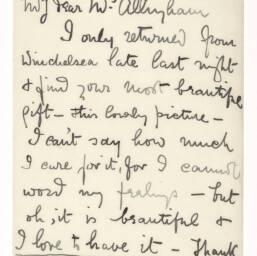 My dear Mrs Allingham
I only returned from
Winchelsea late last night
& find your most beautiful
gift - this lovely picture -
I can't say how much
I care for it, for I cannot
word my feelings - but
oh, it is beautiful &
I love to have it - Thank